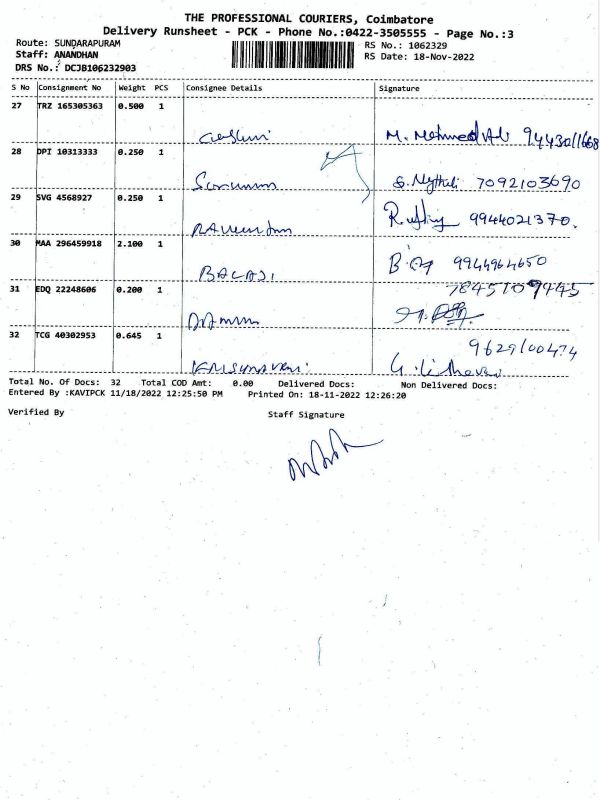 THE PROFESSIONAL COURIERS, Coimbatore
Delivery Runsheet - PCK - Phone No.:0422-3505555 - Page No.:3
Route: SUNDARAPURAM
RS No.: 1062329
Staff: ANANDHAN
RS Date: 18-Nov-2022
DRS No.: DCJB106232903
S No Consignment No Weight PCS Consignee Details Signature
27 TRZ 165305363 0.500 1
M. Mohmed Ali 9443011668
28 DPI 10313333 0.250 1
S. Mythili 7092103690
29 SVG 4568927 0.250 1
9944021370.
30 MAA 296459918 2.100 1
BALAJI 9944964650
31 EDQ 22248606 0.200 1
7845109445
32 TCG 40302953 0.645 1
9629100474
KRISHNAVENI
Total No. Of Docs: 32 Total COD Amt: 0.00 Delivered Docs: Non Delivered Docs:
Entered By :KAVIPCK 11/18/2022 12:25:50 PM Printed On: 18-11-2022 12:26:20
Verified By Staff Signature